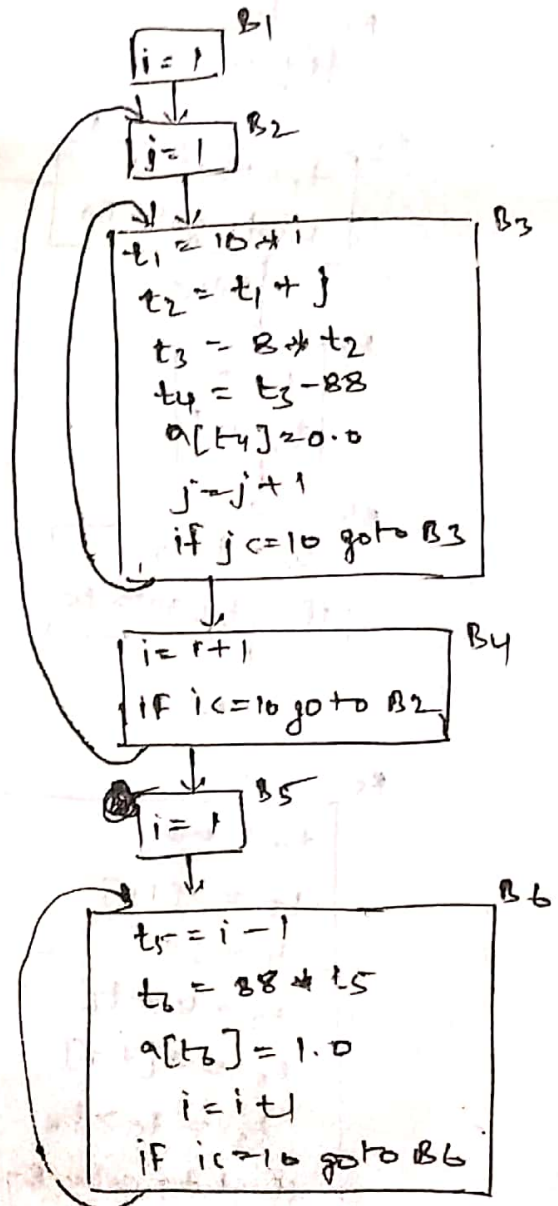 B1
i = 1
B2
j = 1
B3
t1 = 10 * i
t2 = t1 + j
t3 = 8 * t2
t4 = t3 - 88
a[t4] = 0.0
j = j + 1
if j <= 10 goto B3
B4
i = i + 1
if i <= 10 goto B2
B5
i = 1
B6
t5 = i - 1
t6 = 88 * t5
a[t6] = 1.0
i = i + 1
if i <= 10 goto B6